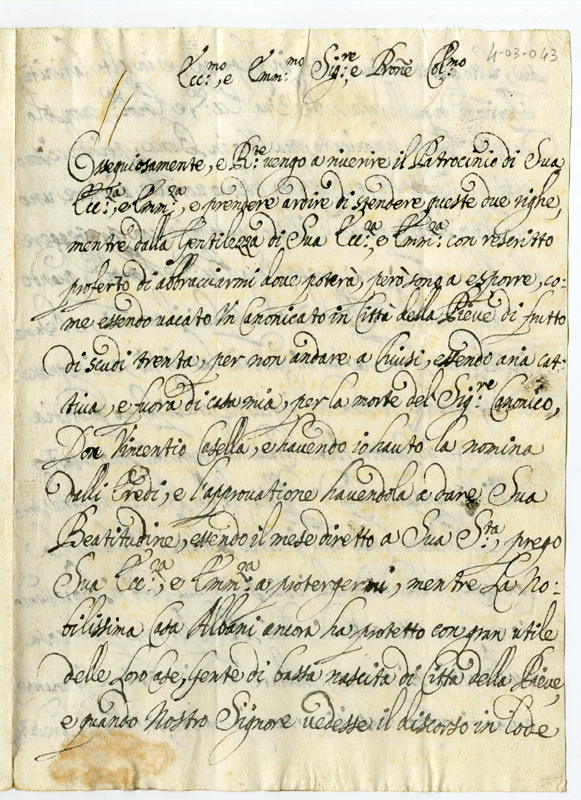 4-03-043
Ecc:mo, e Emm:mo Sig:re, e Prone Colmo
Ossequiosamente, e R:te vengo a riverire il Patrocinio di Sua
Ecc:za, e Emm:za, e prendere ardire di stendere queste due righe,
mentre dalla Gentilezza di Sua Ecc:za, e Emm:za con rescritto
proferto di abbracciarmi dove poterà, però sono a esporre, co:
me essendo vacato Un Canonicato in Città della Pieve di frutto
di scudi trenta, per non andare a Chiusi, essendo aria cat:
tiva, e fuora di casa mia, per la morte del Sig:re Canonico,
Don Vincentio Casella, e havendo io hauto la nomina
dalli Eredi, e l'approvatione havendola a dare Sua
Beatitudine, essendo il mese diretto a Sua S:tà, prego
Sua Ecc:za, e Emm:za a protergermi, mentre La No:
bilissima Casa Albani ancora ha protetto con gran utile
delle Loro Case, Gente di bassa nascita di Città della Pieve,
e quando Nostro Signore vedesse il discorso in Love